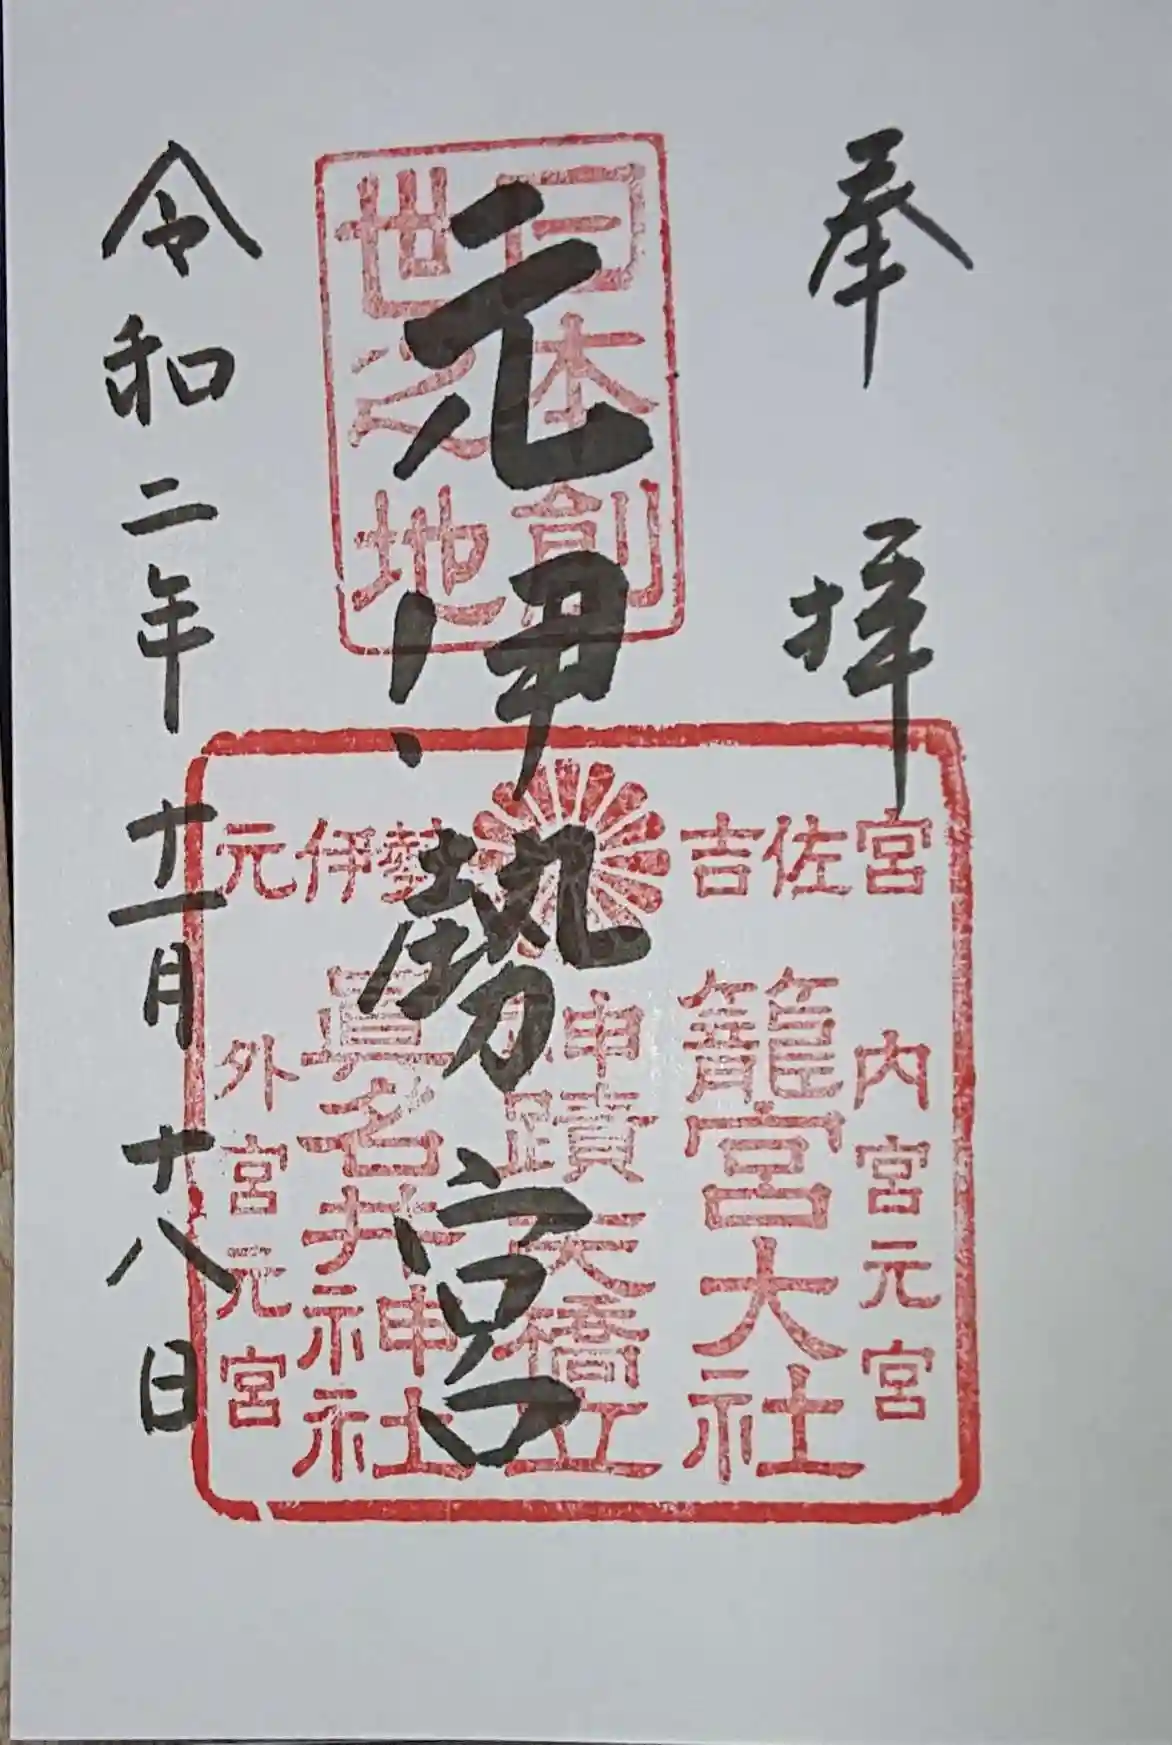 奉拝
元伊勢宮
令和二年十一月十八日
日本創
世之地
吉佐宮
元伊勢
内宮元宮
籠宮大社
神蹟天橋立
眞名井神社
外宮元宮